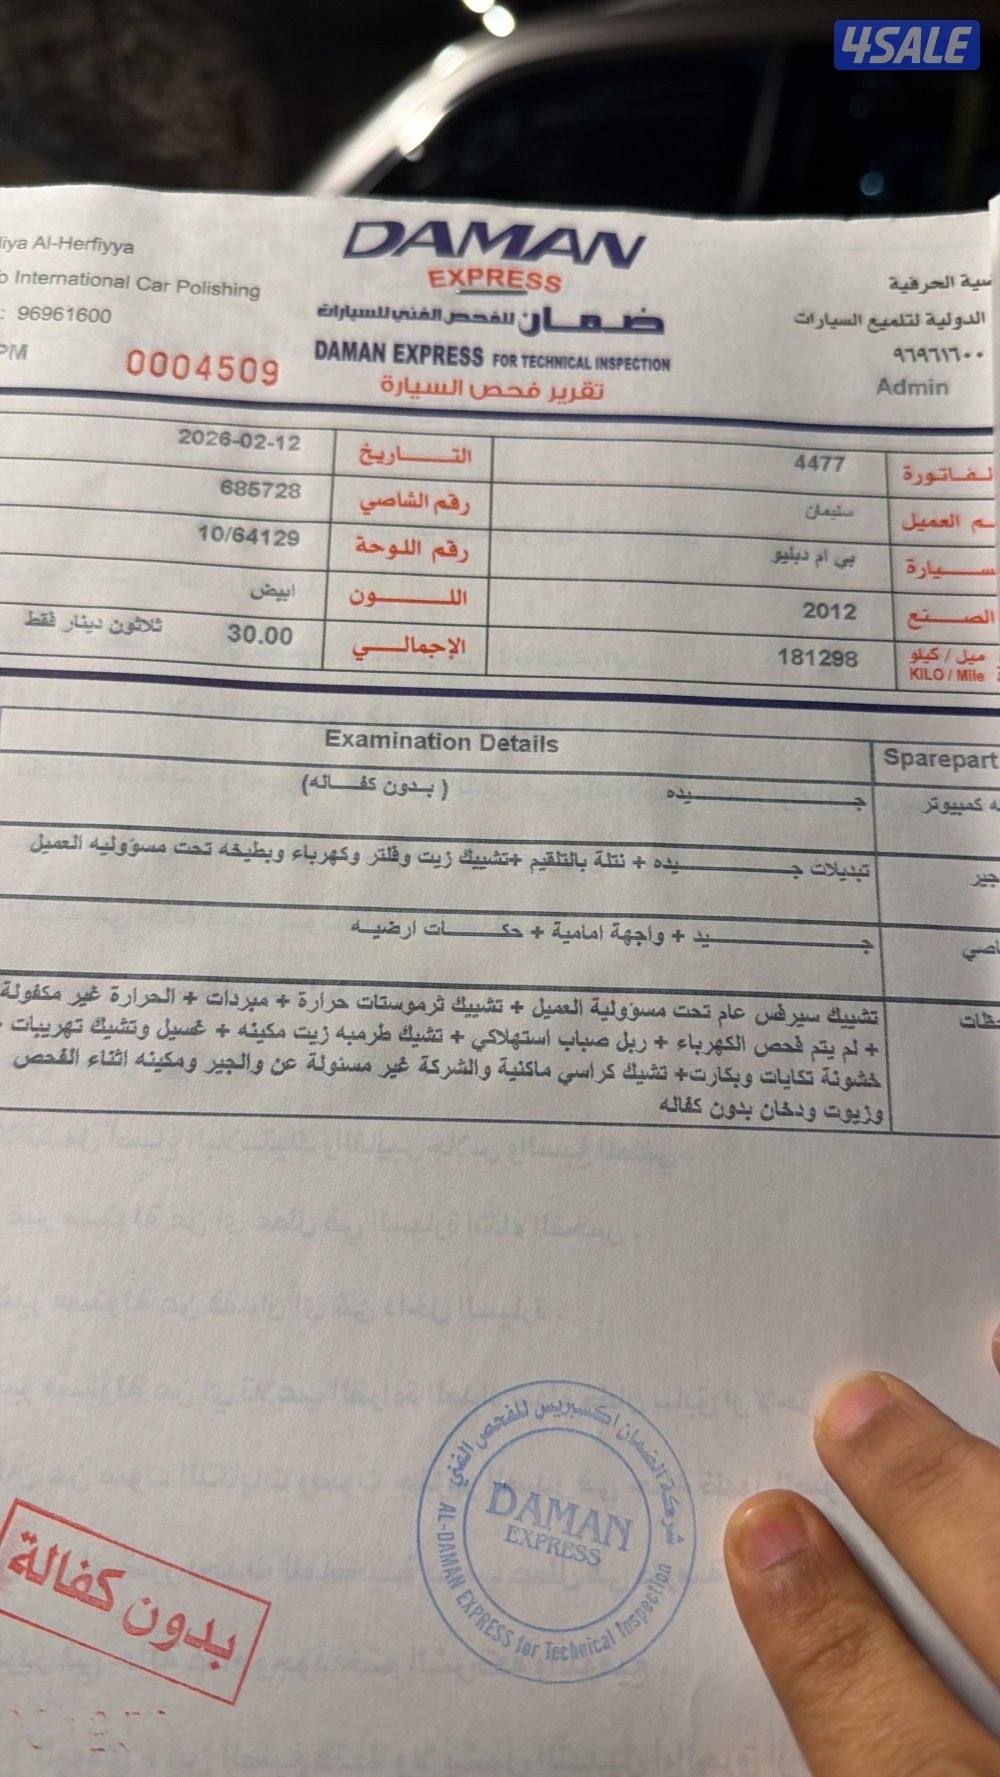 4SALE
liya Al-Herfiyya
International Car Polishing
: 96961600
PM
0004509
DAMAN
EXPRESS
ضمان للفحص الفني للسيارات
DAMAN EXPRESS FOR TECHNICAL INSPECTION
تقرير فحص السيارة
سية الحرفية
الدولية لتلميع السيارات
٩٦٩٦١٦٠٠
Admin
لفاتورة 4477 التاريخ 2026-02-12
م العميل سليمان رقم الشاصي 685728
سيارة بي ام دبليو رقم اللوحة 10/64129
الصنع 2012 اللون ابيض
ميل / كيلو KILO / Mile 181298 الإجمالي 30.00 ثلاثون دينار فقط
Examination Details Sparepart
ه كمبيوتر جيده (بدون كفاله)
جير تبديلات جيده + نتلة بالتلقيم +تشييك زيت وفلتر وكهرباء وبطيخه تحت مسؤوليه العميل
اصي جيد + واجهة امامية + حكات ارضيه
حظات تشييك سيرفس عام تحت مسؤولية العميل + تشييك ثرموستات حرارة + مبردات + الحرارة غير مكفولة
+ لم يتم فحص الكهرباء + ربل صباب استهلاكي + تشيك طرمبه زيت مكينه + غسيل وتشيك تهريبات
خشونة تكايات وبكارت+ تشيك كراسي ماكنية والشركة غير مسئولة عن والجير ومكينه اثناء الفحص
وزيوت ودخان بدون كفاله
شركة الضمان اكسبريس للفحص الفني
DAMAN
EXPRESS
AL-DAMAN EXPRESS for Technical Inspection
بدون كفالة